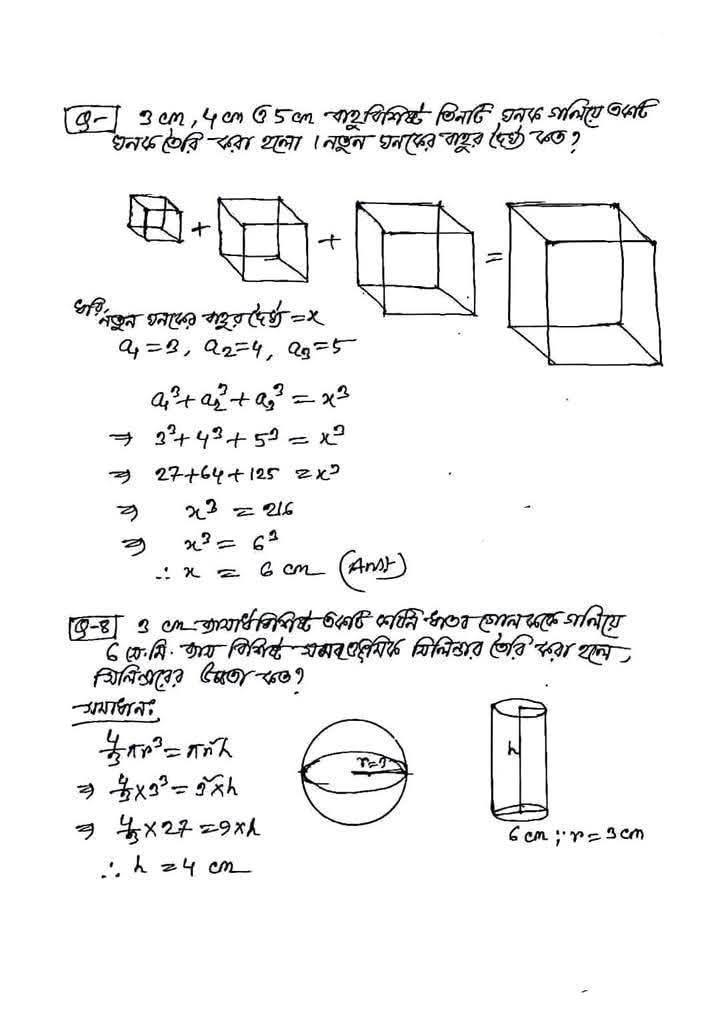 Q- 3 cm, 4 cm ও 5 cm বাহুবিশিষ্ট তিনটি ঘনক গলিয়ে একটি
ঘনক তৈরি করা হলো। নতুন ঘনকের বাহুর দৈর্ঘ্য কত?
+ + =
ধরি, নতুন ঘনকের বাহুর দৈর্ঘ্য = x
a₁ = 3, a₂ = 4, a₃ = 5
a₁³ + a₂³ + a₃³ = x³
⇒ 3³ + 4³ + 5³ = x³
⇒ 27 + 64 + 125 = x³
⇒ x³ = 216
⇒ x³ = 6³
∴ x = 6 cm (Ans)
Q-8 3 cm ব্যাসার্ধ বিশিষ্ট একটি কঠিন ধাতব গোলককে গলিয়ে
6 সে.মি. ব্যাস বিশিষ্ট সমবৃত্তভূমিক সিলিন্ডার তৈরি করা হলে,
সিলিন্ডারের উচ্চতা কত?
সমাধানঃ
4/3 πr³ = πr²h
⇒ 4/3 × 3³ = 3² × h
⇒ 4/3 × 27 = 9 × h
∴ h = 4 cm
r=3
h
6 cm ∵ r = 3 cm